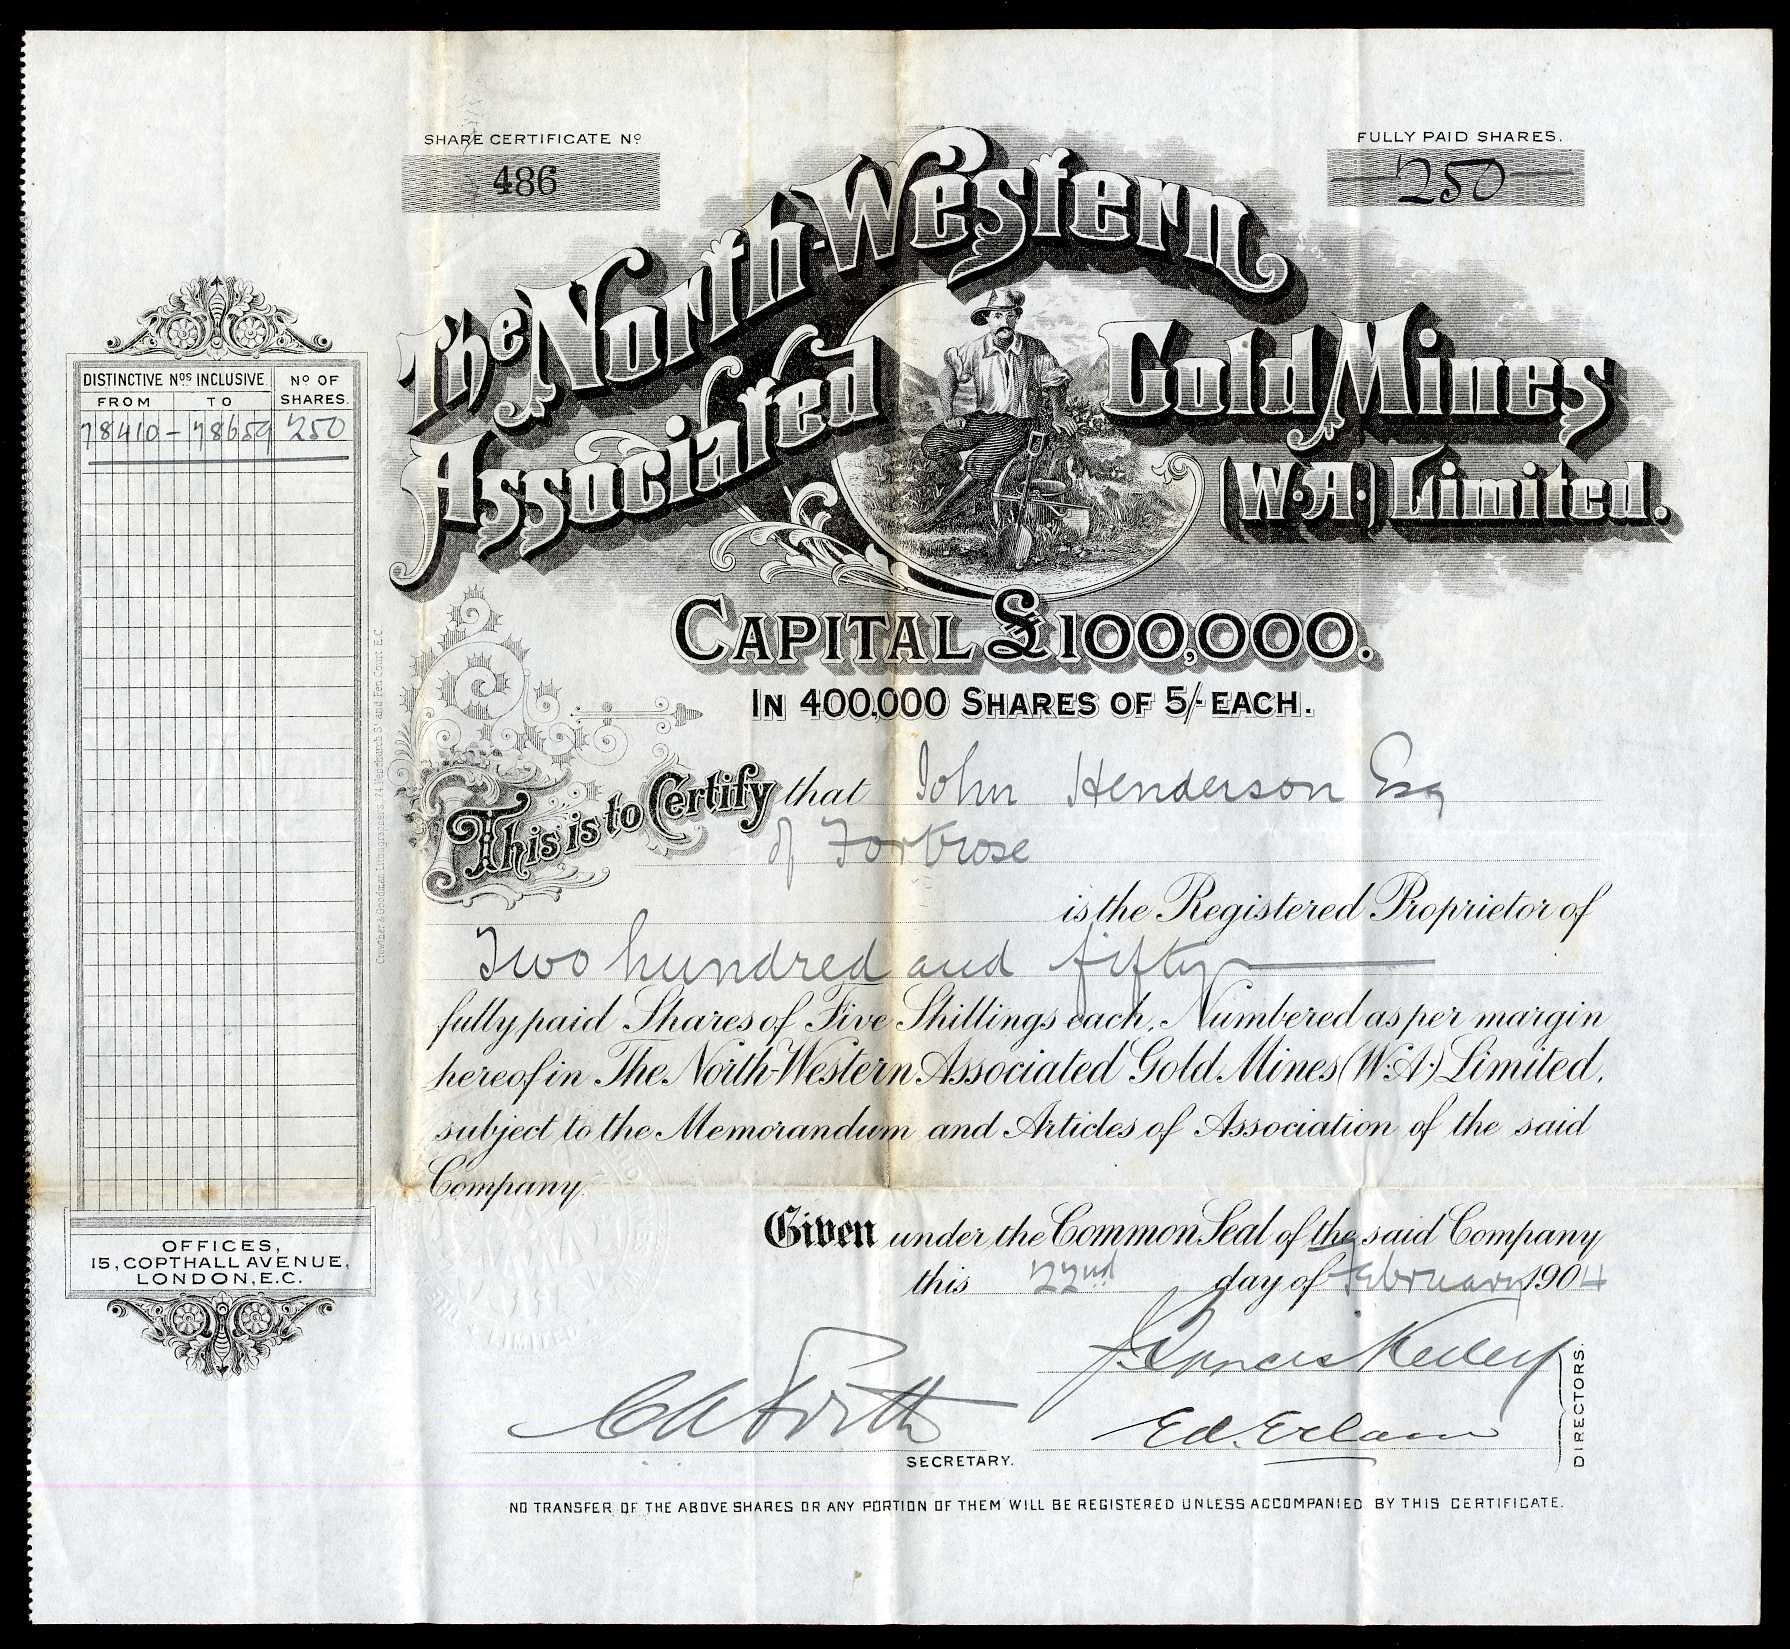 SHARE CERTIFICATE Nº
486
FULLY PAID SHARES.
250
The North-Western
Associated Gold Mines
(W.A.) Limited.
CAPITAL £100,000.
IN 400,000 SHARES OF 5/- EACH.
DISTINCTIVE Nos INCLUSIVE
FROM TO
Nº OF SHARES.
78410 - 78659 250
This is to Certify that John Henderson Esq
of Fortrose
is the Registered Proprietor of
Two hundred and fifty
fully paid Shares of Five Shillings each, Numbered as per margin
hereof in The North-Western Associated Gold Mines (W.A.) Limited,
subject to the Memorandum and Articles of Association of the said
Company.
Given under the Common Seal of the said Company
this 22nd day of February 1904
J. Francis
Ed.
DIRECTORS.
SECRETARY.
OFFICES,
15, COPTHALL AVENUE,
LONDON, E.C.
NO TRANSFER OF THE ABOVE SHARES OR ANY PORTION OF THEM WILL BE REGISTERED UNLESS ACCOMPANIED BY THIS CERTIFICATE.